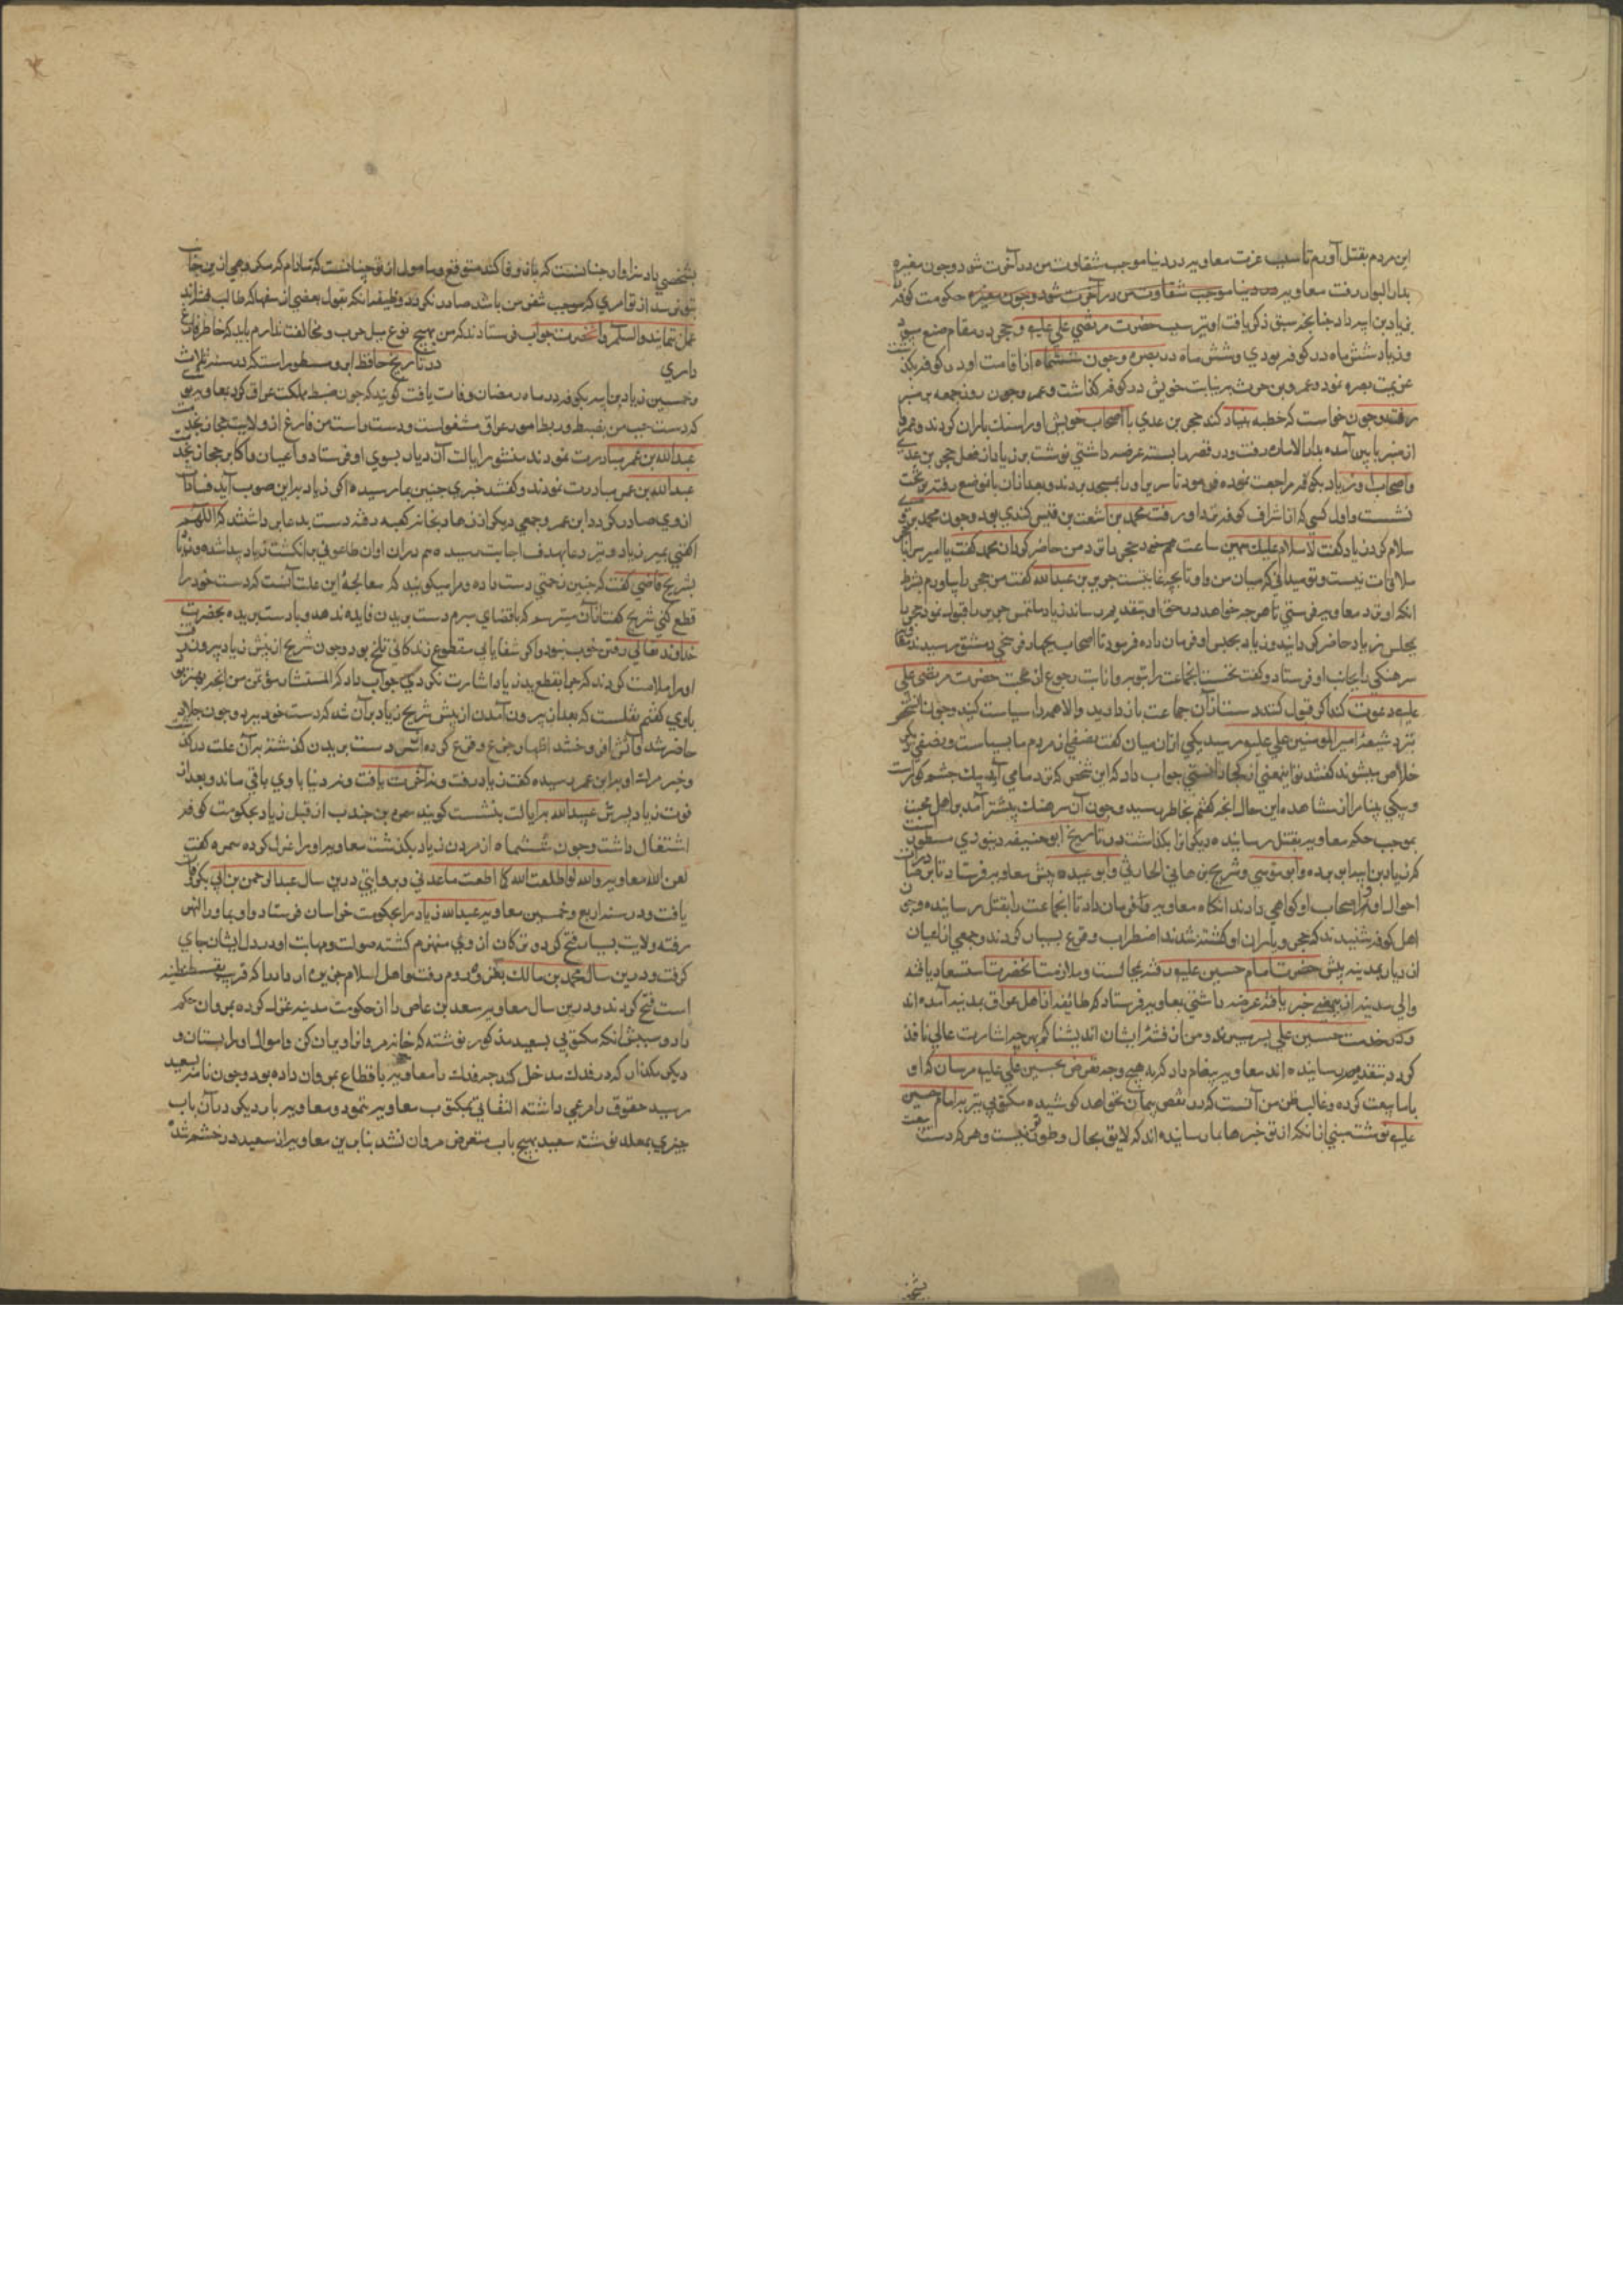 این مردم بقتل آورم تا سبب عزت معاویه در دنیا موجب شقاوت من در آخرت شود و چون مغیره
بدار البوار رفت معاویه در دنیا موجب شقاوت من در آخرت شود و چون مغیره حکومت کوفه
بزیاد بن ابیه داد چنانچه سبق ذکر یافت او نیز سب حضرت مرتضی علی علیه و حجر در مقام منع
و زیاد شش ماه در کوفه بودی و شش ماه در بصره و چون ششماه از اقامت او در کوفه بگذشت
عزیمت بصره نمود و عمرو بن حریث بر نیابت خویش در کوفه گذاشت و عمرو چون روز جمعه بر منبر
رفته و چون خواست که خطبه بنیاد کند حجر بن عدی با اصحاب خویش او را سنک باران کردند و عمرو
از منبر پایین آمده بدار الاماره رفت و در قصر را بسته عرضه داشتی نوشت بزیاد از فعل حجر بن عدی
و اصحاب او زیاد بکوفه مراجعت نموده فرمود تا سریر او را بمسجد بردند و بعد ازان بانموضع رفته بر تخت
نشست و اول کسی که از اشراف کوفه نزد او رفت محمد بن اشعث بن قیس کندی بود و چون محمد بر وی
سلام کرد زیاد گفت لا سلام علیک همین ساعت عم خود حجر را نزد من حاضر کردان محمد گفت یا امیر مرا با
ملاقات نیست و تو میدانی که میان من و او تا بچه غایتست جریر بن عبدالله گفت من حجر را بیاورم بشرط
انکه او نزد معاویه فرستی تا هر چه خواهد در حق او بتقدیم رساند زیاد ملتمس جریر را قبول نمود حجر را
بمجلس زیاد حاضر کردانید و زیاد بحبس او فرمان داده فرمود تا اصحاب
سرهنکی را بجانب او فرستاد و گفت نخست انجماعت را بتوبه و انابت و رجوع از محبت حضرت مرتضی علی
علیه دعوت کند اگر قبول کنند دست ازان جماعت باز دارید و الا همه را سیاست کنید و چون
نزد شیعهٔ امیر المومنین علی علیه رسید یکی ازان میان گفت نصفی از مردم ما بسیاست و نصفی دیگر
خلاص میشوند گفتند تو این معنی از کجا دانستی جواب داد که این شخص که نزد ما می آید یک چشم کورست
و یکی بینا مرا از مشاهده این حال انچه گفتم بخاطر رسید و چون آن سرهنک پیشتر آمد بر اهل محبت
بموجب حکم معاویه بقتل رسانیده دیگر انرا بگذاشت در تاریخ ابو حنیفه دینوری مسطور است
که زیاد بن ابیه ابو برده و ابو موسی و شریح بن هانی الحارثی و ابو عبیده پیش معاویه فرستاد تا
احوال او و اصحاب او گواهی دادند انکاه معاویه فرمان داد تا انجماعت را بقتل رسانیده و چون
اهل کوفه شنیدند که حجر و یاران او کشته شدند اضطراب و فزع بسیار کردند و جمعی از اعیان
ان دیار بمدینه پیش حضرت امام حسین علیه رفته بمجالست و ملازمت انحضرت استسعاد یافته
والی مدینه ازینمعنی خبر یافته عرضه داشتی بمعاویه فرستاد که طائفه از اهل عراق بمدینه آمده اند
و در خدمت حسین علی بسر میبرند و من از فتنهٔ ایشان اندیشناکم بهر چه اشارت عالی نافذ
کردد بتقدیم رسانیده اند معاویه پیغام داد که بهیچ وجه تعرض بحسین علی علیه مرسان که او
با ما بیعت کرده و غالب ظن من آنست که در نقض پیمان نخواهد کوشید و مکتوبی نیز بامام حسین
علیه نوشت مبنی از انکه از تو خبرها بما رسانیده اند که لایق بحال و طور تو نیست و هر که دست بیعت
بشخصی داد سزاوار چنانست که بان وفا کند متوقع و مامول از تو چنانست که تا مادام که مکروهی ازین جانب
بتو نرسد از تو امری که موجب شغب من باشد صادر نکردد و وظیفه انکه بقول بعضی از سفها که طالب فتنه اند
عمل ننمایند و السلم و انحضرت جواب فرستادند که من بهیچ نوع میل حرب و مخالفت ندارم باید که خاطر فارغ
داری در تاریخ حافظ ابرو مسطور است که در سنه ثلاث
و خمسین زیاد بن ابیه بکوفه در ماه رمضان وفات یافت گویند که چون ضبط مملکت عراق کرد بمعاویه
که دست چپ من بضبط و ربط امور عراق مشغول است و دست راست من فارغ از ولایت حجاز
عبدالله بن عمر مبادرت نمودند منشور ایالت آن دیار بسوی او فرستاد و اعیان و اکابر حجاز نزد
عبدالله بن عمر مبادرت نمودند و گفتند خبری چنین بما رسیده اگر زیاد برین صوب آید فسادات
از وی صادر کردد ابن عمر و جمعی دیگر از زهاد بخانه کعبه رفته دست بدعا برداشتند که اللهم
اکفنی بمیر زیاد و تیر دعا بهدف اجابت رسیده هم دران اوان طاعونی بر انکشت زیاد پیدا شده و
بشریح قاضی گفت که چنین زحمتی دست داده و مرا میگویند که معالجهٔ این علت آنست که دست خود را
قطع کنی شریح گفت ازان میترسم که باقتضای مبرم دست بریدن فایده ندهد و با دست بریده بحضرت
خداوند تعالی رفتن خوب نبود و اگر شفا یابی مقطوع زندگانی تلخ بود و چون شریح از پیش زیاد بیرون
او را ملامت کردند که چرا بقطع ید زیاد اشارت نکردی جواب داد که المستشار مؤتمن من انچه بهتر بود
باوی گفتم نقلست که بعد از بیرون آمدن از پیش شریح زیاد بران شد که دست خود ببرد و چون جلاد
حاضر شد و آتش افروختند اظهار جزع و فزع کرده از سر دست بریدن گذشته بران علت درگذشت
و خبر مرگ او بابن عمر رسیده گفت زیاد رفت و نه آخرت یافت و نه دنیا با وی باقی ماند و بعد از
فوت زیاد پسرش عبیدالله بایالت بنشست گویند سمره بن جندب از قبل زیاد بحکومت کوفه
اشتغال داشت و چون ششماه از مردن زیاد بگذشت معاویه او را عزل کرده سمره گفت
لعن الله معاویه والله لو اطعت الله کما اطعت ما عذبنی و بروایتی درین سال عبدالرحمن بن ابی بکر وفات
یافت و در سنه اربع و خمسین معاویه عبیدالله زیاد را بحکومت خراسان فرستاد و او بماوراالنهر
رفته ولایت بسیار فتح کرده ترکان از وی منهزم گشته صولت و مهابت او در دل ایشان جای
گرفت و درین سال محمد بن مالک بغزو روم رفت و اهل اسلام جزیره ارواد را که قریب بقسطنطنیه
است فتح کردند و درین سال معاویه سعد بن عاص را از حکومت مدینه عزل کرده بمروان حکم
داد و سببش انکه مکتوبی بسعید مذکور نوشته که خانه مروانرا ویران کن و اموال او را بستان و
دیگر مکذار که در فدک مدخل کند چه فدک را معاویه باقطاع بمروان داده بود و چون نامه بسعید
رسید حقوق را مرعی داشته التفاتی بمکتوب معاویه ننمود و معاویه بار دیگر دران باب
چیزی بمعلم نوشته سعید بهیچ باب متعرض مروان نشد بنابرین معاویه از سعید در خشم شد